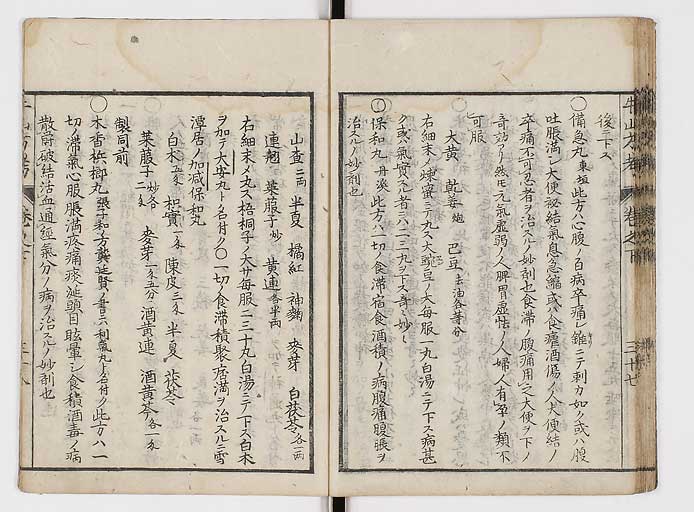 後ニ下ス
○備急丸 東垣 此方ハ心腹ノ百病卒痛シ錐ニテ刺カ如ク或ハ腹
吐脹満シ大便秘結氣息急縮或ハ食癪酒傷ノ人大便結ノ
卒痛不可忍者ヲ治スルノ妙剤也食滞ノ腹痛用之大便ヲ下ノ
奇効アリ然モ元氣虚弱ノ人脾胃虚怯ノ人婦人有孕ノ類不
可服
大黄 乾姜 炮 巴豆 去油各等分
右細末ノ煉蜜ニテ丸ス大豌豆ノ大毎服一丸白湯ニテ下ス病甚
ク或ハ氣實スル者ニハ二三丸ヲ下ス奇々妙々
○保和丸 丹溪 此方ハ一切ノ食滞宿食酒積ノ病腹痛腹脹ヲ
治スルノ妙剤也
山査 二両 半夏 橘紅 神麴 麥芽 白茯苓 各一両
連翹 莱菔子 炒 黄連 各半両
右細末メ丸ス梧桐子ノ大サ毎服二三十丸白湯ニテ下ス白木
ヲ加テ大安丸ト名付ク○一切ノ食滞積聚痞満ヲ治スルニ雪
潭居ノ加減保和丸
白木 五匁 枳實 一匁 陳皮 三匁 半夏 茯苓
莱菔子 炒各二匁 麥芽 一匁五分 酒黄連 酒黄芩 各一匁
製同前
○木香梹榔丸 張子和方龔廷賢ノ書ニ六利嚴丸ト名付ク 此方ハ一
切ノ滞氣心腹脹満疼痛痰涎頭目眩暈シ食積酒毒ノ病
散欝破結活血通經氣分ノ病ヲ治スルノ妙剤也
牛山方考 巻之下 三十七